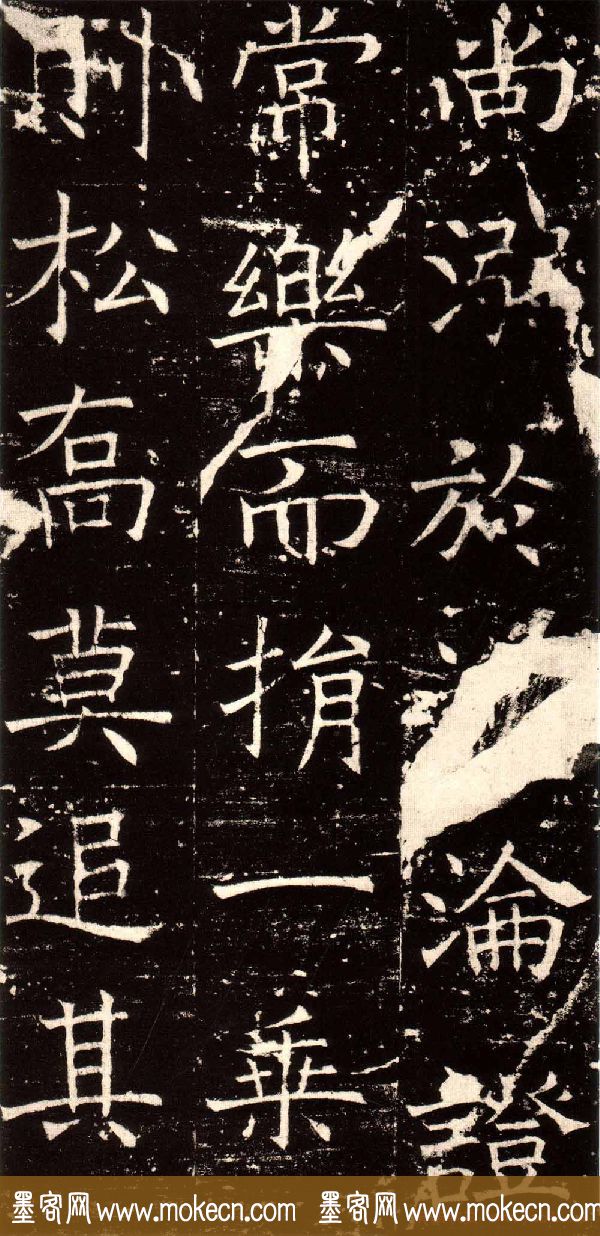 尚溺於淪證
常樂而捐一乗
松喬莫追其
墨客网 www.mokecn.com 墨客网 www.mokecn.com